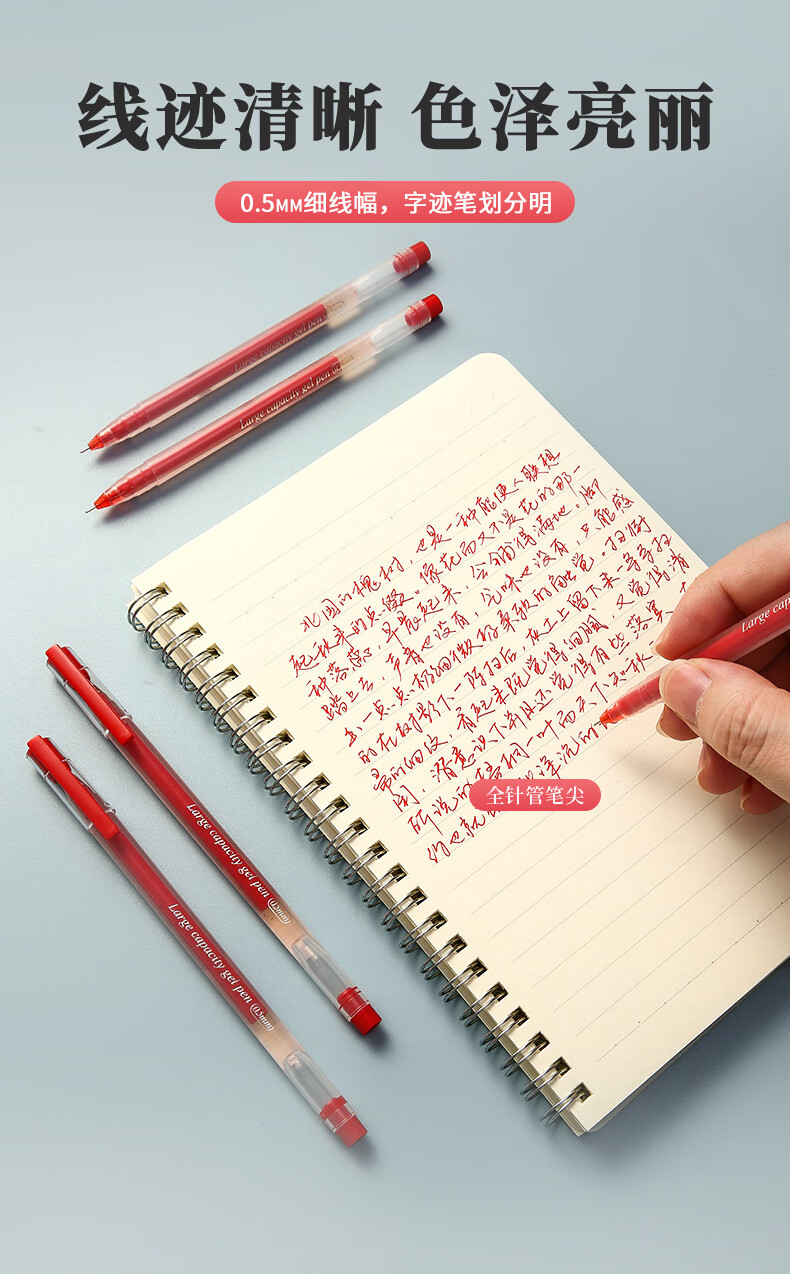 线迹清晰 色泽亮丽
0.5MM细线幅，字迹笔划分明
Large capacity gel pen
Large capacity gel pen
北国的槐树，也是一种能使人联想
起秋来的点缀。像花而又不是花的那一
种落蕊，早晨起来，会铺得满地。脚
踏上去，声音也没有，气味也没有，只能感
出一点点极细微的柔软的触觉。扫街
的在树影下一阵扫后，灰土上留下来一条条扫
帚的细纹，看起来既觉得细腻，又觉得清
闲，潜意识下并且还觉得有些落寞
所说的梧桐一叶而天下知秋
约也就
Large cap
全针管笔尖
Large capacity gel pen (0.5mm)
Large capacity gel pen (0.5mm)